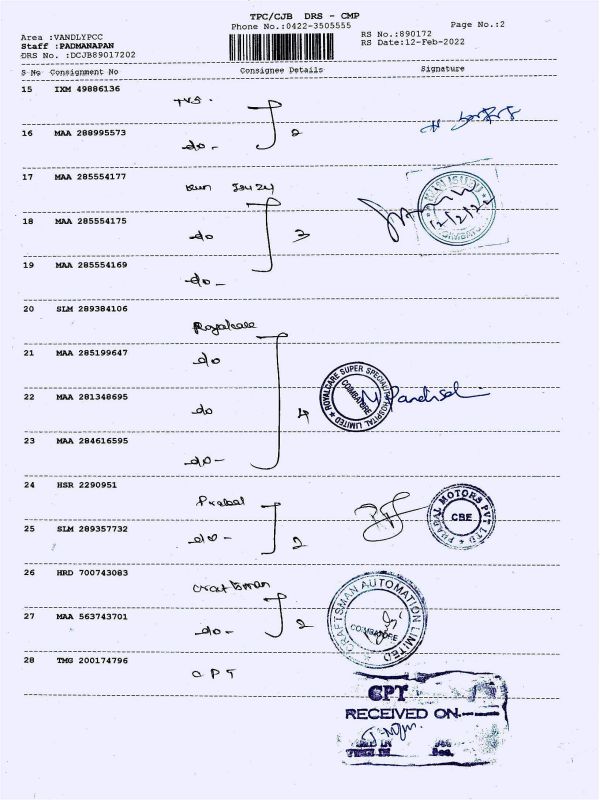 TPC/CJB DRS - CMP
Phone No.:0422-3505555
Page No.:2
Area :VANDLYPCC
RS No.:890172
Staff :PADMANAPAN
RS Date:12-Feb-2022
DRS No. :DCJB89017202
S No Consignment No Consignee Details Signature
15 IXM 49886136
TVS.
2
16 MAA 288995573
do-
17 MAA 285554177
Kun Isuzu
KUN ISUZU
12/2/22
18 MAA 285554175
do
3
19 MAA 285554169
do-
20 SLM 289384106
Royalcare
21 MAA 285199647
do
ROYALCARE SUPER SPECIALITY HOSPITAL LIMITED
COIMBATORE
22 MAA 281348695
do
4
23 MAA 284616595
do-
24 HSR 2290951
Prabal
PRABAL MOTORS PVT LTD
CBE
25 SLM 289357732
do-
2
26 HRD 700743083
Craftsman
CRAFTSMAN AUTOMATION LIMITED
COIMBATORE
27 MAA 563743701
do-
2
28 TMG 200174796
CPT
CPT
RECEIVED ON